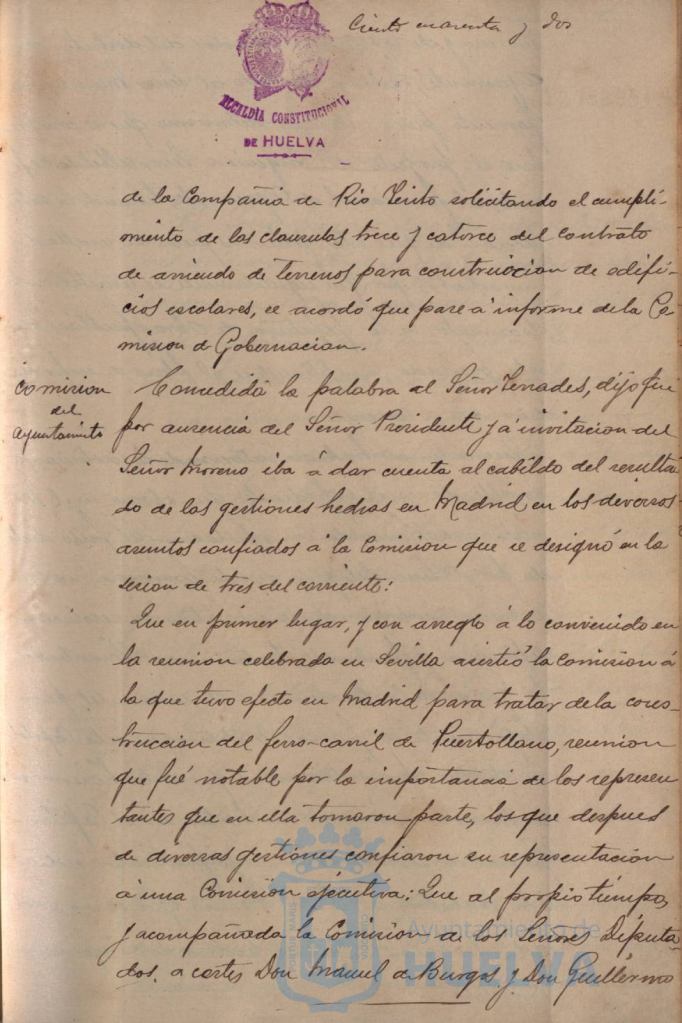 Ciento cuarenta y dos
ALCALDÍA CONSTITUCIONAL
DE HUELVA
de la Compañia de Rio Tinto solicitando el cumpli-
miento de las clausulas trece y catorce del contrato
de arriendo de terrenos para construccion de edifi-
cios escolares, se acordó que pase á informe de la Co-
mision de Gobernacion.
Comision
del
Ayuntamiento
Concedida la palabra al Señor Terrades, dijo que
por ausencia del Señor Presidente y á invitacion del
Señor Moreno iba á dar cuenta al cabildo del resulta-
do de las gestiones hechas en Madrid en los diversos
asuntos confiados á la Comision que se designó en la
sesion de tres del corriente:
Que en primer lugar, y con arreglo á lo convenido en
la reunion celebrada en Sevilla asistió la Comision á
la que tuvo efecto en Madrid para tratar de la cons-
truccion del ferro-carril de Puertollano, reunion
que fué notable por la importancia de los represen
tantes que en ella tomaron parte, los que despues
de diversas gestiones confiaron su representacion
á una Comision ejecutiva: Que al propio tiempo,
y acompañada la Comision de los Señores Diputa-
dos, a cortes Don Manuel de Burgos y Don Guillermo
Ayuntamiento de
HUELVA